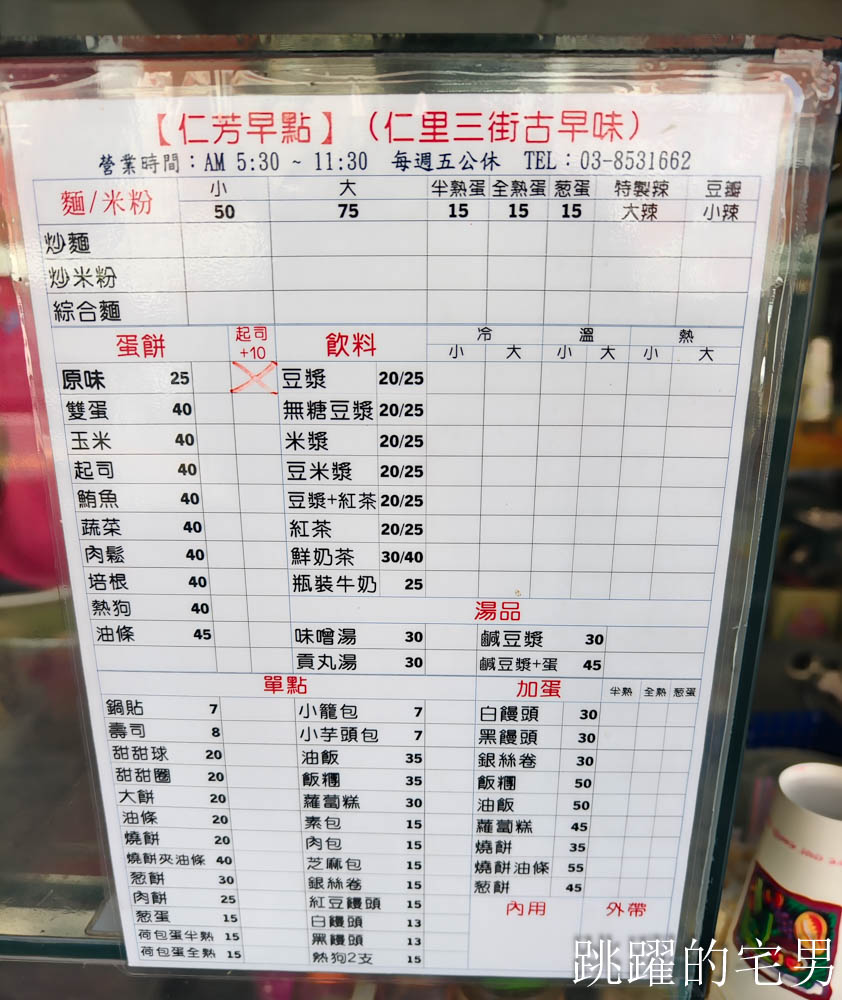 【仁芳早點】（仁里三街古早味）
營業時間：AM 5:30 ~ 11:30 每週五公休 TEL：03-8531662
麵/米粉 小 大 半熟蛋 全熟蛋 葱蛋 特製辣 豆瓣
50 75 15 15 15 大辣 小辣
炒麵
炒米粉
綜合麵
蛋餅 起司+10 飲料 冷 溫 熱
小 大 小 大 小 大
原味 25 豆漿 20/25
雙蛋 40 無糖豆漿 20/25
玉米 40 米漿 20/25
起司 40 豆米漿 20/25
鮪魚 40 豆漿+紅茶 20/25
蔬菜 40 紅茶 20/25
肉鬆 40 鮮奶茶 30/40
培根 40 瓶裝牛奶 25
熱狗 40 湯品
油條 45 味噌湯 30 鹹豆漿 30
貢丸湯 30 鹹豆漿+蛋 45
單點 加蛋 半熟 全熟 葱蛋
鍋貼 7 小籠包 7 白饅頭 30
壽司 8 小芋頭包 7 黑饅頭 30
甜甜球 20 油飯 35 銀絲卷 30
甜甜圈 20 飯糰 35 飯糰 50
大餅 20 蘿蔔糕 30 油飯 50
油條 20 素包 15 蘿蔔糕 45
燒餅 20 肉包 15 燒餅 35
燒餅夾油條 40 芝麻包 15 燒餅油條 55
葱餅 30 銀絲卷 15 葱餅 45
肉餅 25 紅豆饅頭 15 內用 外帶
葱蛋 15 白饅頭 13
荷包蛋半熟 15 黑饅頭 13
荷包蛋全熟 15 熱狗2支 15
跳躍的宅男